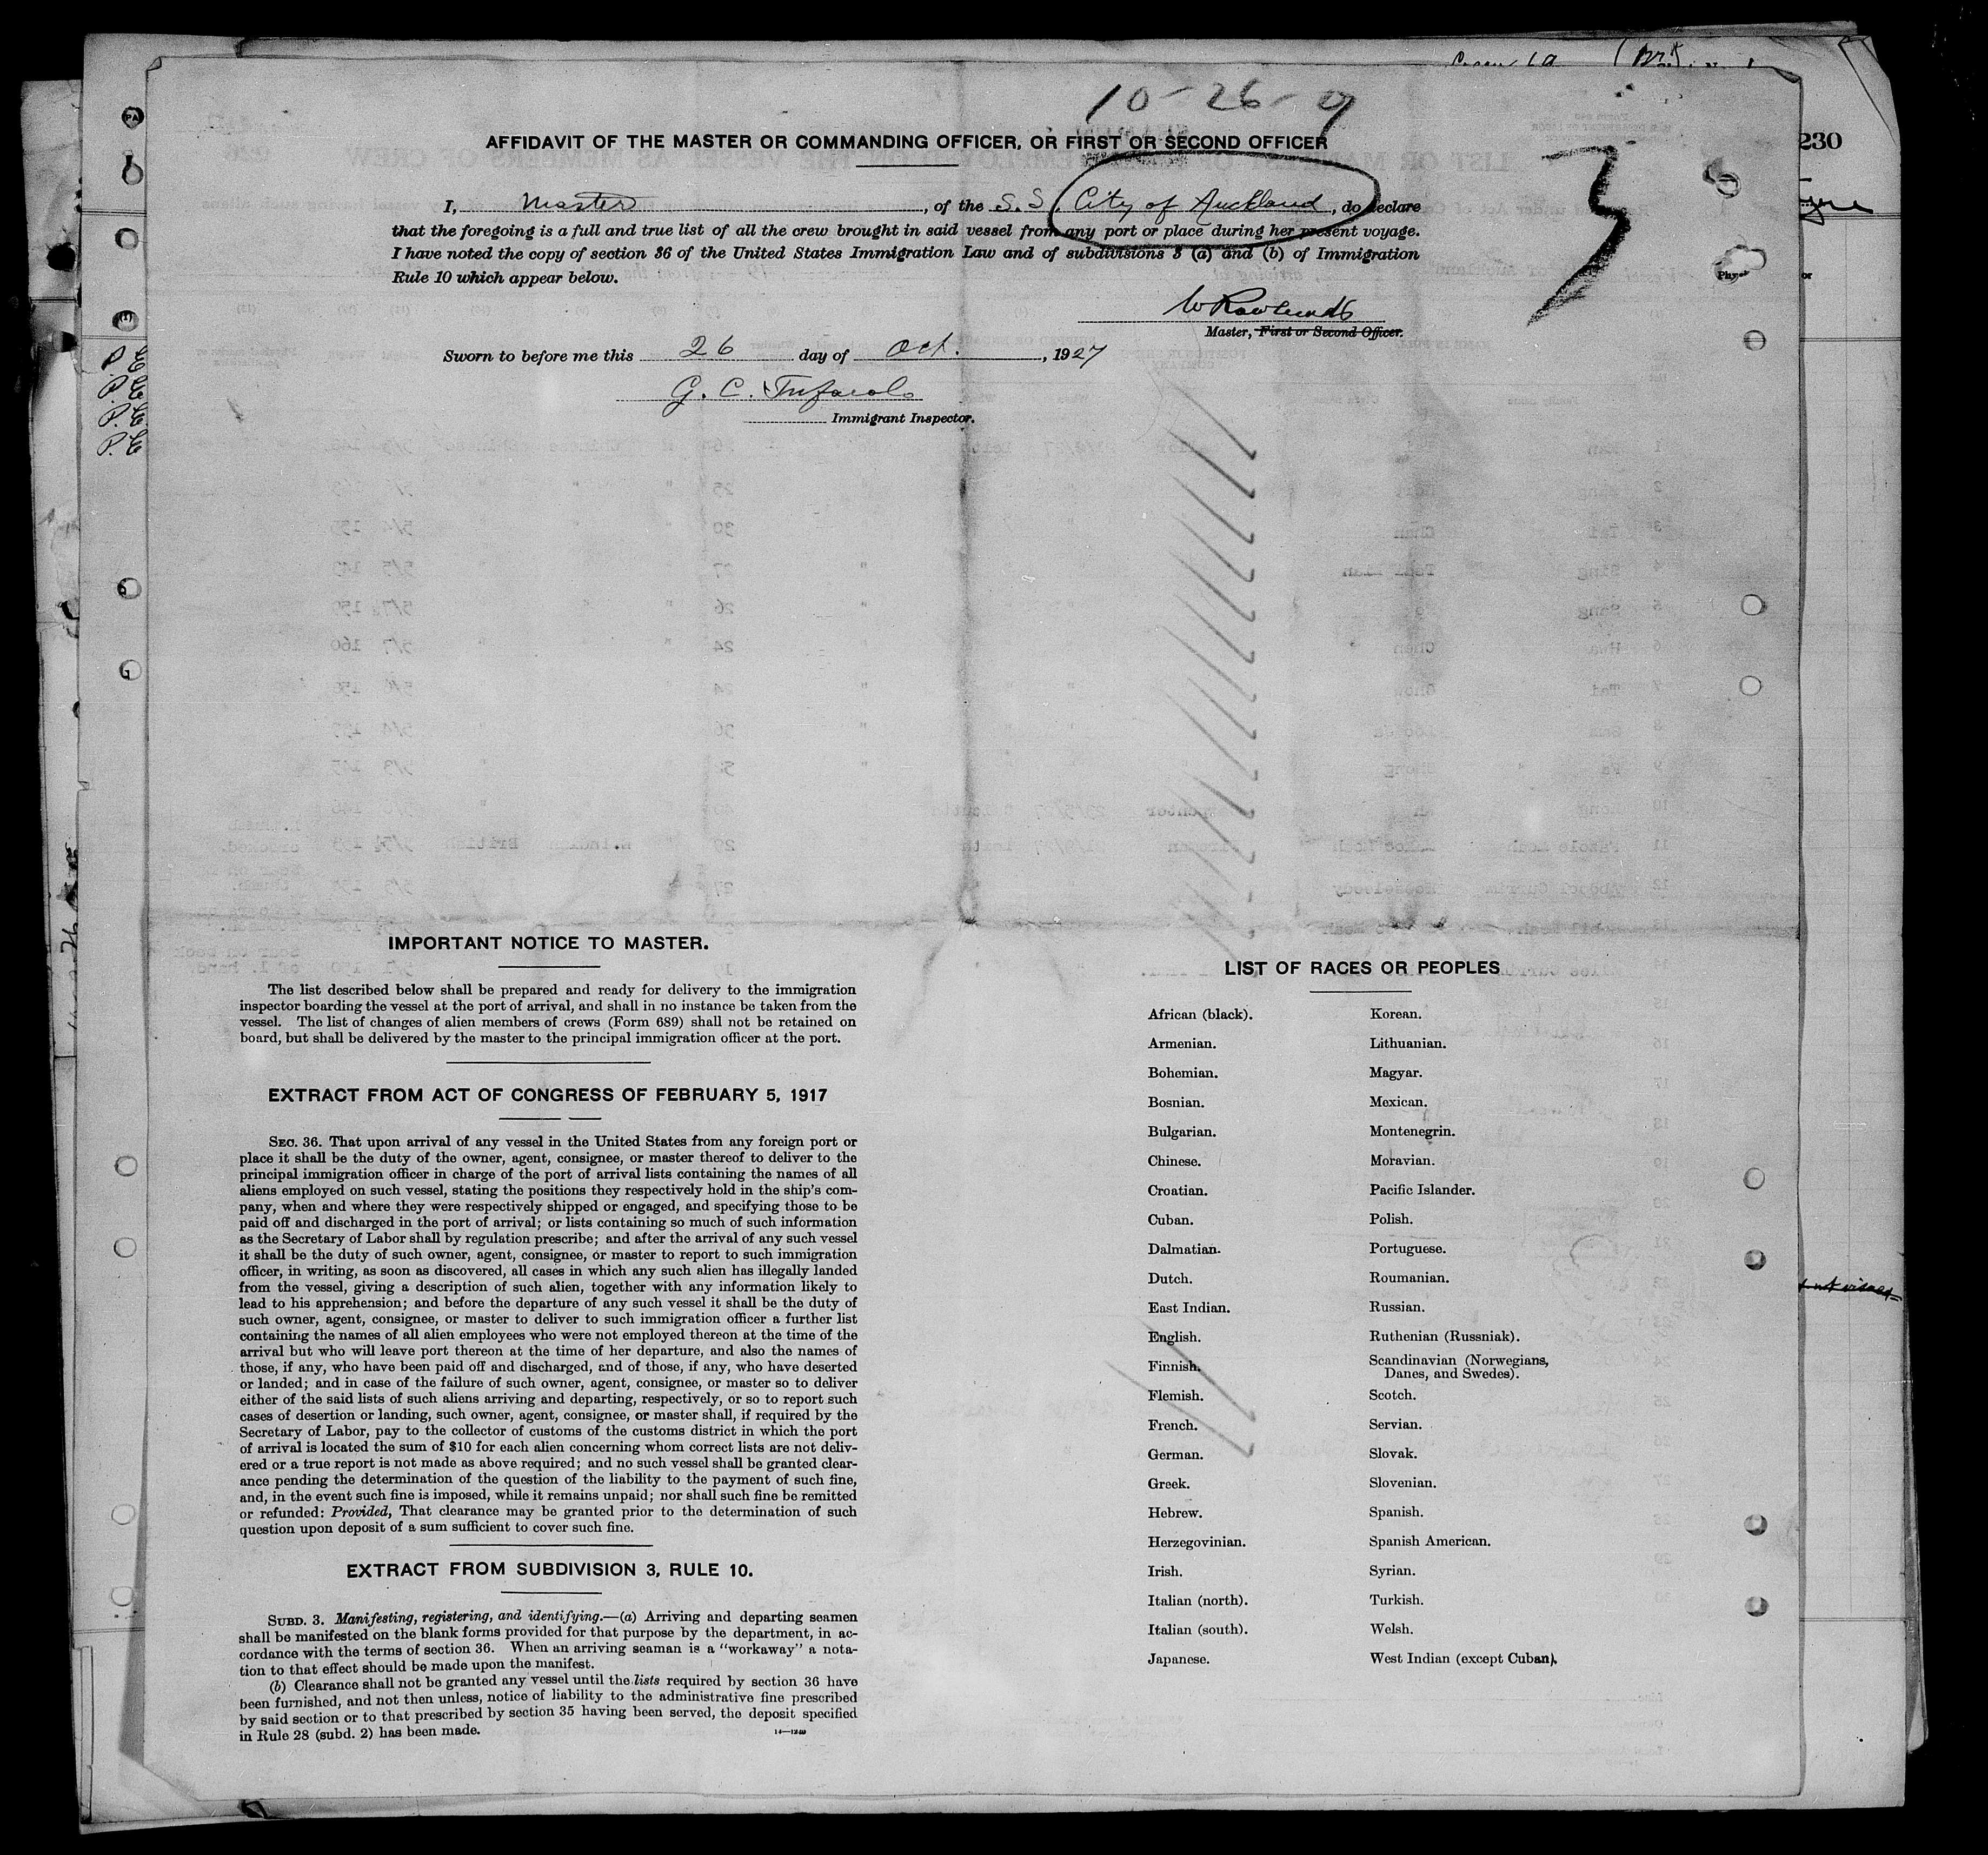 10-26-
AFFIDAVIT OF THE MASTER OR COMMANDING OFFICER, OR FIRST OR SECOND OFFICER
I, Master, of the S.S. City of Auckland, do declare
that the foregoing is a full and true list of all the crew brought in said vessel from any port or place during her present voyage.
I have noted the copy of section 36 of the United States Immigration Law and of subdivisions 3 (a) and (b) of Immigration
Rule 10 which appear below.
W Rowlands
Master, First or Second Officer.
Sworn to before me this 26 day of Oct., 1927
G. C.
Immigrant Inspector.
3
230
P.E
P.E
P.E
P.E
IMPORTANT NOTICE TO MASTER.
The list described below shall be prepared and ready for delivery to the immigration
inspector boarding the vessel at the port of arrival, and shall in no instance be taken from the
vessel. The list of changes of alien members of crews (Form 689) shall not be retained on
board, but shall be delivered by the master to the principal immigration officer at the port.
EXTRACT FROM ACT OF CONGRESS OF FEBRUARY 5, 1917
SEC. 36. That upon arrival of any vessel in the United States from any foreign port or
place it shall be the duty of the owner, agent, consignee, or master thereof to deliver to the
principal immigration officer in charge of the port of arrival lists containing the names of all
aliens employed on such vessel, stating the positions they respectively hold in the ship's com-
pany, when and where they were respectively shipped or engaged, and specifying those to be
paid off and discharged in the port of arrival; or lists containing so much of such information
as the Secretary of Labor shall by regulation prescribe; and after the arrival of any such vessel
it shall be the duty of such owner, agent, consignee, or master to report to such immigration
officer, in writing, as soon as discovered, all cases in which any such alien has illegally landed
from the vessel, giving a description of such alien, together with any information likely to
lead to his apprehension; and before the departure of any such vessel it shall be the duty of
such owner, agent, consignee, or master to deliver to such immigration officer a further list
containing the names of all alien employees who were not employed thereon at the time of the
arrival but who will leave port thereon at the time of her departure, and also the names of
those, if any, who have been paid off and discharged, and of those, if any, who have deserted
or landed; and in case of the failure of such owner, agent, consignee, or master so to deliver
either of the said lists of such aliens arriving and departing, respectively, or so to report such
cases of desertion or landing, such owner, agent, consignee, or master shall, if required by the
Secretary of Labor, pay to the collector of customs of the customs district in which the port
of arrival is located the sum of $10 for each alien concerning whom correct lists are not deliv-
ered or a true report is not made as above required; and no such vessel shall be granted clear-
ance pending the determination of the question of the liability to the payment of such fine,
and, in the event such fine is imposed, while it remains unpaid; nor shall such fine be remitted
or refunded: Provided, That clearance may be granted prior to the determination of such
question upon deposit of a sum sufficient to cover such fine.
EXTRACT FROM SUBDIVISION 3, RULE 10.
SUBD. 3. Manifesting, registering, and identifying.—(a) Arriving and departing seamen
shall be manifested on the blank forms provided for that purpose by the department, in ac-
cordance with the terms of section 36. When an arriving seaman is a "workaway" a nota-
tion to that effect should be made upon the manifest.
(b) Clearance shall not be granted any vessel until the lists required by section 36 have
been furnished, and not then unless, notice of liability to the administrative fine prescribed
by said section or to that prescribed by section 35 having been served, the deposit specified
in Rule 28 (subd. 2) has been made.
LIST OF RACES OR PEOPLES
African (black).
Armenian.
Bohemian.
Bosnian.
Bulgarian.
Chinese.
Croatian.
Cuban.
Dalmatian.
Dutch.
East Indian.
English.
Finnish.
Flemish.
French.
German.
Greek.
Hebrew.
Herzegovinian.
Irish.
Italian (north).
Italian (south).
Japanese.
Korean.
Lithuanian.
Magyar.
Mexican.
Montenegrin.
Moravian.
Pacific Islander.
Polish.
Portuguese.
Roumanian.
Russian.
Ruthenian (Russniak).
Scandinavian (Norwegians,
Danes, and Swedes).
Scotch.
Servian.
Slovak.
Slovenian.
Spanish.
Spanish American.
Syrian.
Turkish.
Welsh.
West Indian (except Cuban).